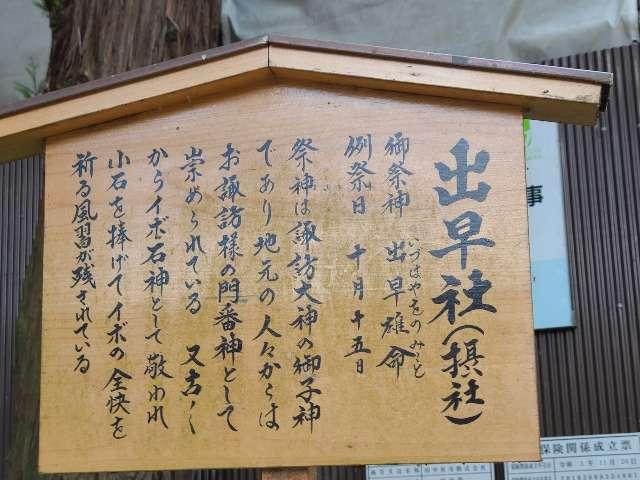 出早社(摂社)
御祭神 出早雄命
いづはやをのみこと
例祭日 十月十五日
祭神は諏訪大神の御子神
であり地元の人々からは
お諏訪様の門番神として
崇められている 又古く
からイボ石神として敬われ
小石を捧げてイボの全快を
祈る風習が残されている
事
保険関係成立票